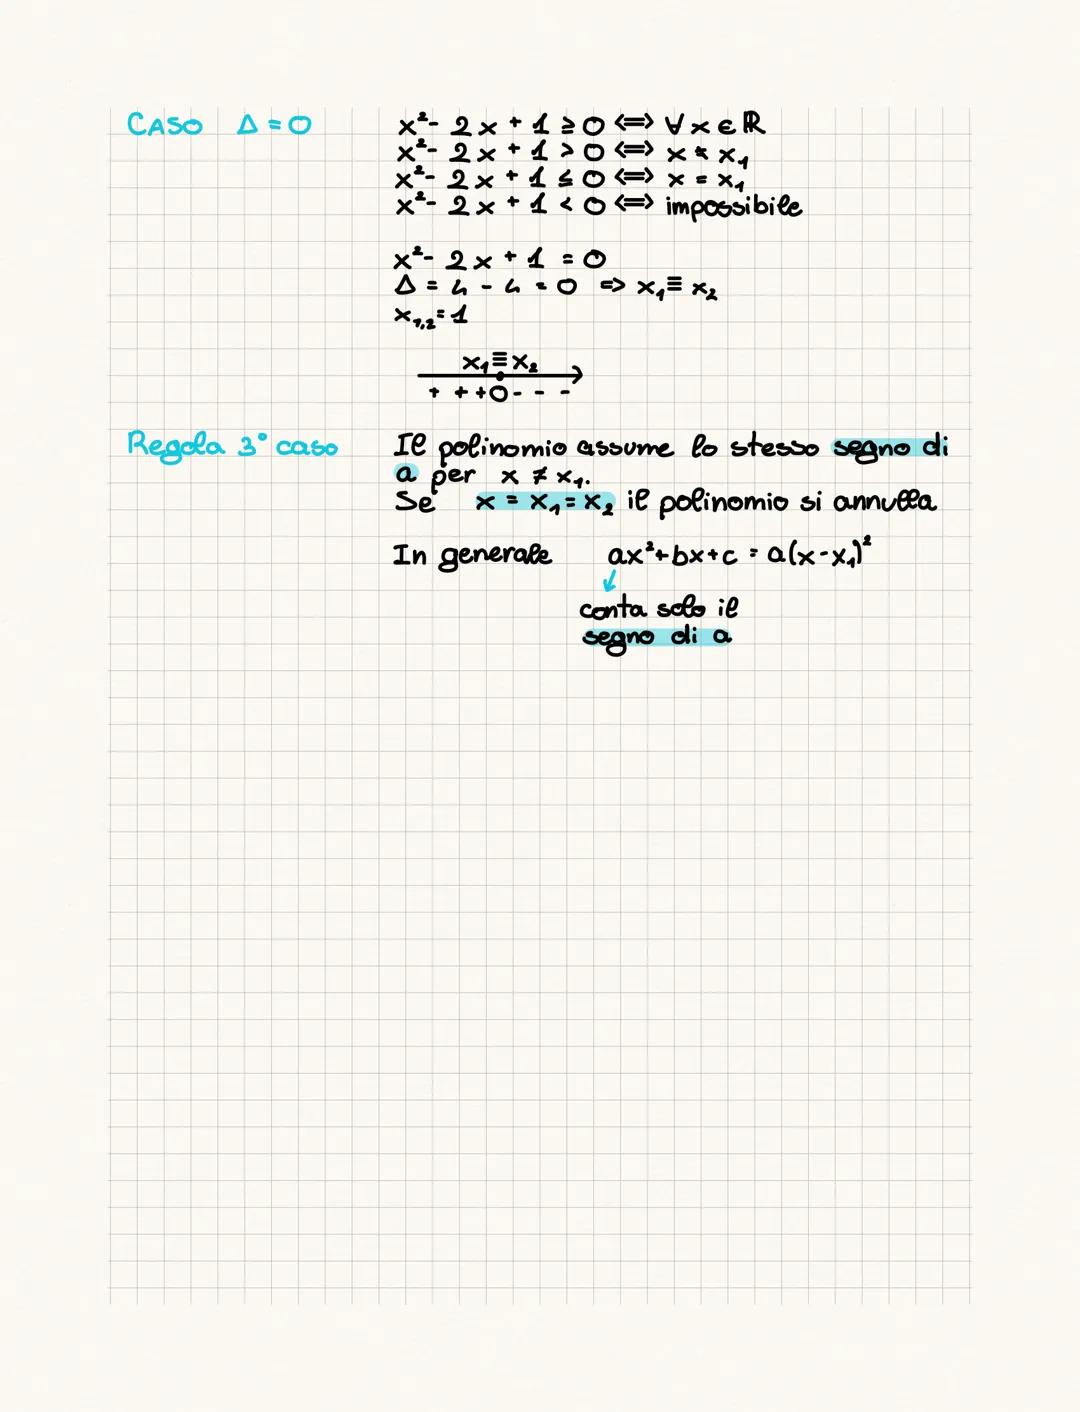 CASO Δ = 0
x² - 2x + 1 ≥ 0 ⟺ ∀ x ∈ ℝ
x² - 2x + 1 > 0 ⟺ x ≠ x₁
x² - 2x + 1 ≤ 0 ⟺ x = x₁
x² - 2x + 1 < 0 ⟺ impossibile
x² - 2x + 1 = 0
Δ = 4 - 4 = 0 => x₁ ≡ x₂
x₁,₂ = 1
x₁ ≡ x₂
+ + + 0 - - -
Regola 3° caso
Il polinomio assume lo stesso segno di
a per x ≠ x₁.
Se x = x₁ = x₂ il polinomio si annulla
In generale ax² + bx + c = a(x - x₁)²
conta solo il
segno di a